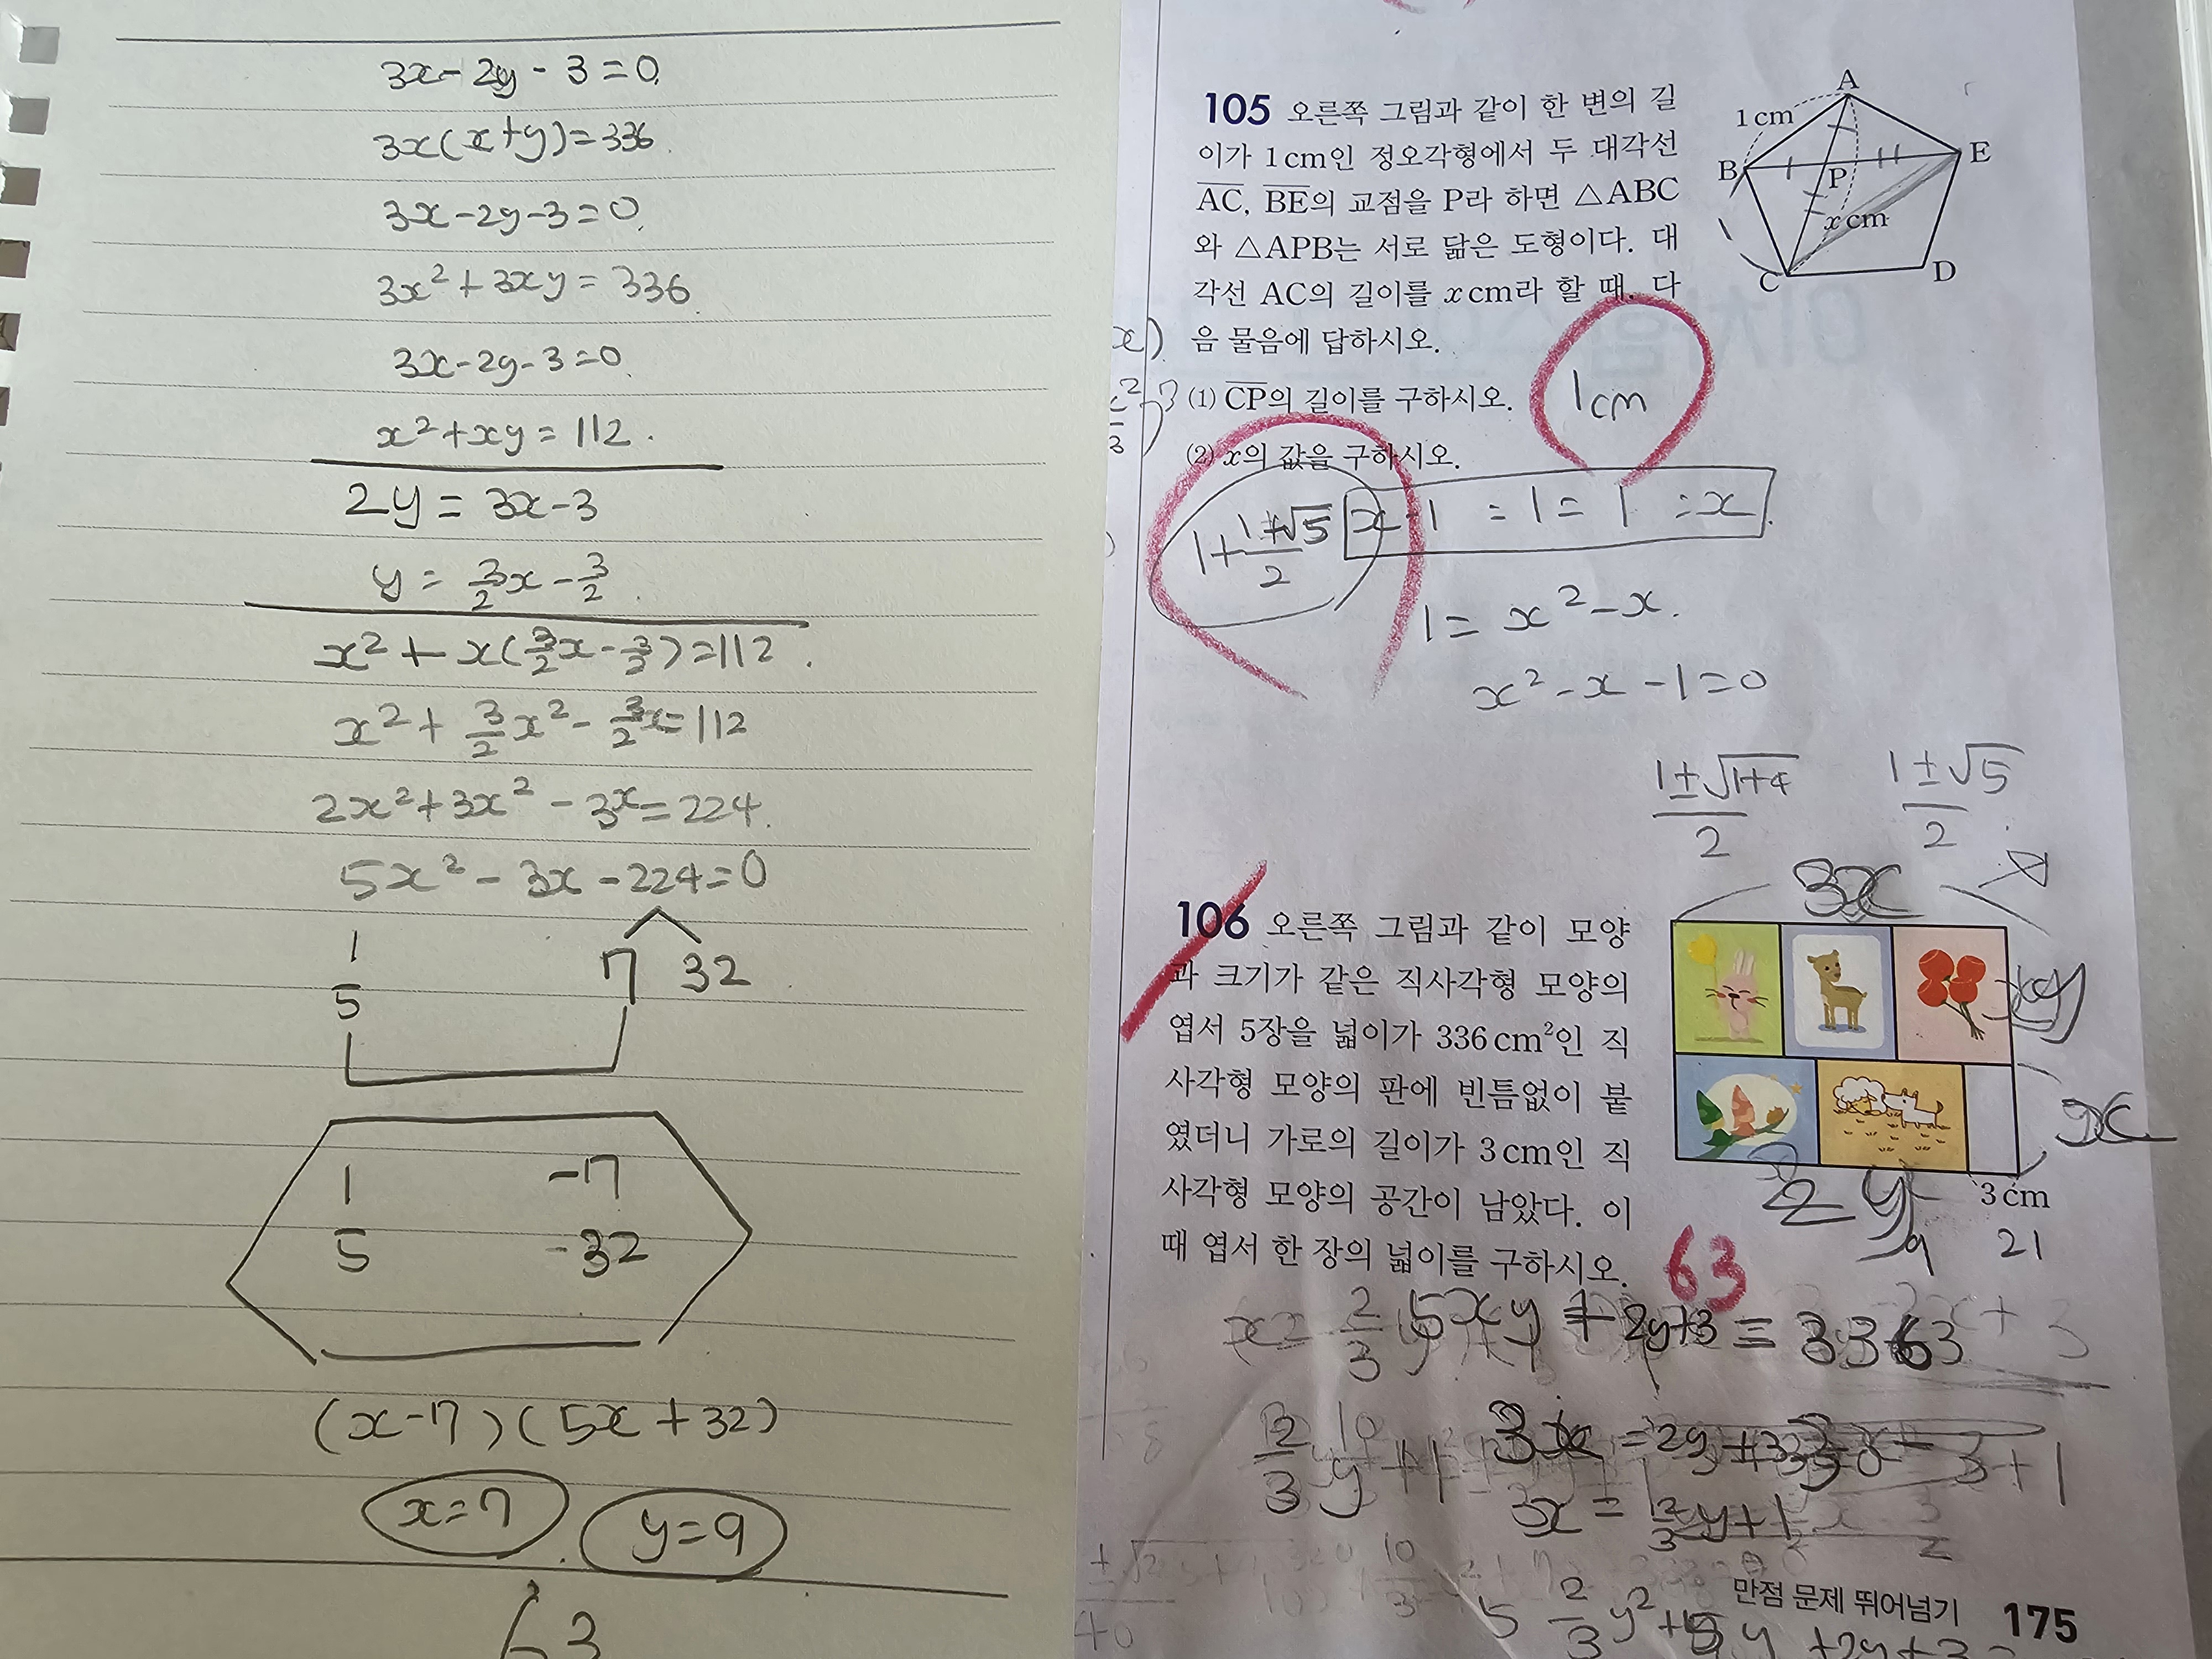 3x-2y-3=0
3x(x+y)=336.
3x-2y-3=0.
3x²+3xy=336
3x-2y-3=0.
x²+xy=112.
2y=3x-3
y=3/2x-3/2.
x²+x(3/2x-3/2)=112.
x²+3/2x²-3/2x=112
2x²+3x²-3x=224.
5x²-3x-224=0
1
5
7 32
1 -7
5 -32
(x-7)(5x+32)
x=7 y=9
63
105 오른쪽 그림과 같이 한 변의 길
이가 1cm인 정오각형에서 두 대각선
AC, BE의 교점을 P라 하면 △ABC
와 △APB는 서로 닮은 도형이다. 대
각선 AC의 길이를 x cm라 할 때, 다
음 물음에 답하시오.
A
1cm
B
E
P
x cm
C
D
(1) CP의 길이를 구하시오.
1cm
(2) x의 값을 구하시오.
x-1 : 1 = 1 : x
1=x²-x.
x²-x-1=0
1±√1+4/2 1±√5/2
106 오른쪽 그림과 같이 모양
과 크기가 같은 직사각형 모양의
엽서 5장을 넓이가 336cm²인 직
사각형 모양의 판에 빈틈없이 붙
였더니 가로의 길이가 3cm인 직
사각형 모양의 공간이 남았다. 이
때 엽서 한 장의 넓이를 구하시오.
3x
y
x
2y
3cm
21
63
만점 문제 뛰어넘기 175